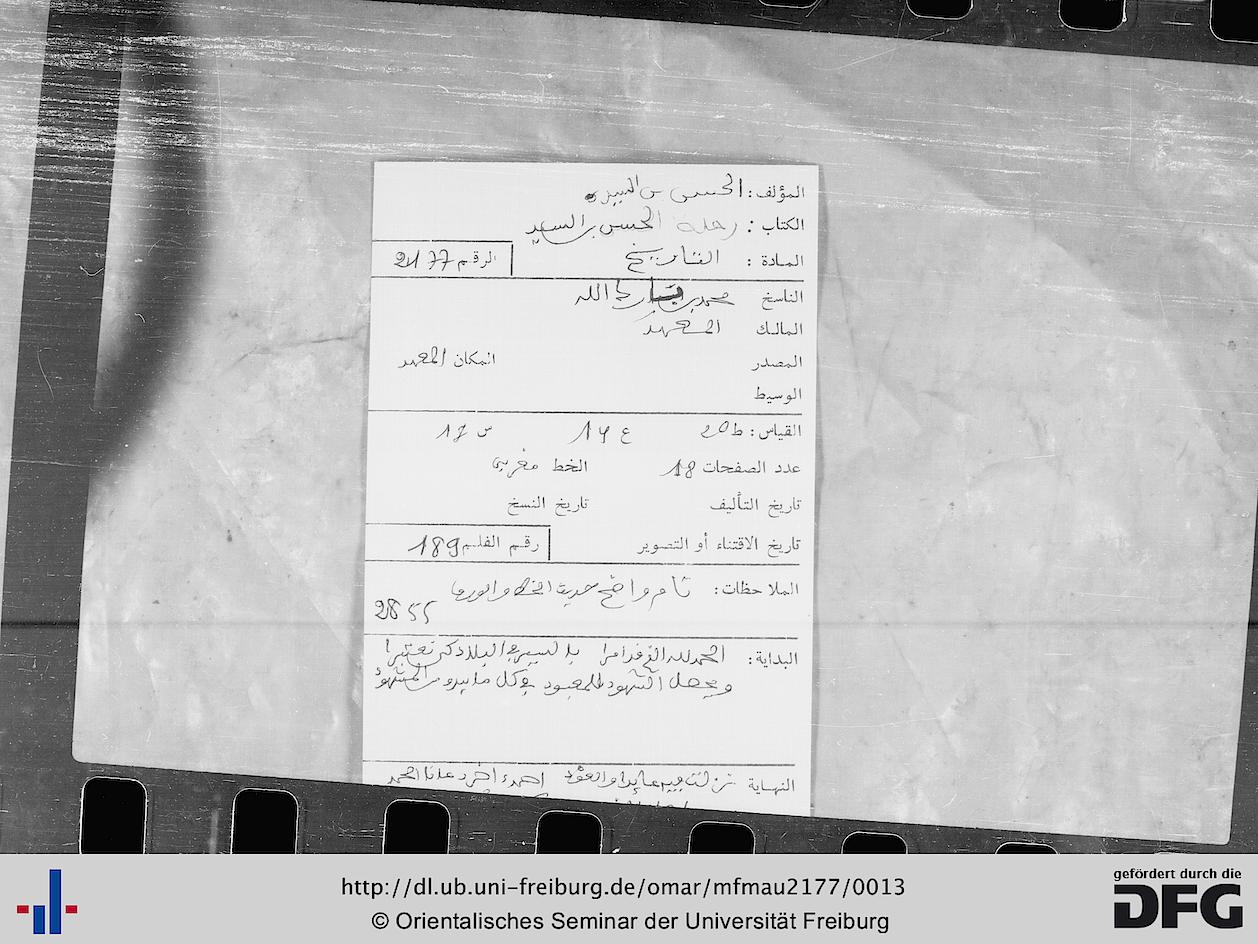 المؤلف: الحسن بن
الكتاب: رحلة الحسن بن السيد
المادة: التاريخ
الرقم 2177
الناسخ محمد بن الله
المالك المعهد
المصدر المكان المعهد
الوسيط
القياس: ط 20 ع 14 س 17
عدد الصفحات 18 الخط مغربي
تاريخ التأليف تاريخ النسخ
تاريخ الاقتناء أو التصوير رقم الفلم 189
الملاحظات: تام واضح حديث الخط والورق
2855
البداية: الحمد لله الذي قد امرا بالسير في البلاد كي نعتبرا
ويحصل الشهود للمعبود في كل ما يبدو من المشهود
النهاية
http://dl.ub.uni-freiburg.de/omar/mfmau2177/0013
© Orientalisches Seminar der Universität Freiburg
gefördert durch die
DFG